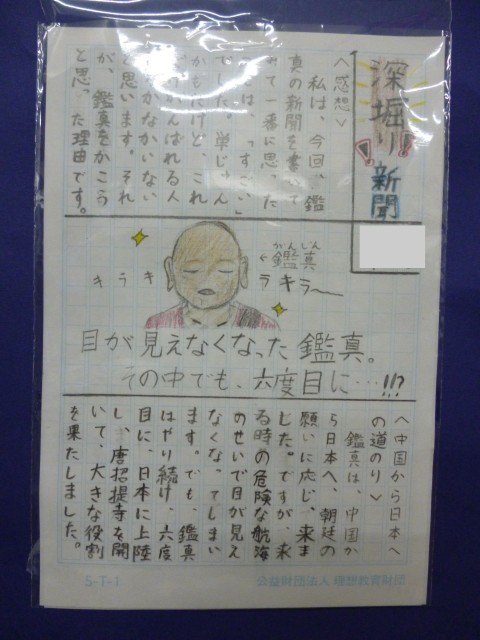 深堀り!!
新聞
〈感想〉
私は、今回、鑑
真の新聞を書いて
みて一番に思った
は、「すごい」
でした。単じゅん
かもだけど、これ
がんばれる人
はなかなかいない
と思います。それ
が、鑑真をかこう
と思った理由です。
がんじん
鑑真
キラキ
ラキラ〜
目が見えなくなった鑑真。
その中でも、六度目に…!!?
〈中国から日本へ
の道のり〉
鑑真は、中国か
ら日本へ、朝廷の
願いに応じ、来ま
した。ですが、来
る時の危険な航海
のせいで目が見え
なくなってしまい
ます。でも、鑑真
はやり続け、六度
目に、日本に上陸
し、唐招提寺を開
いて、大きな役割
を果たしました。
S-T-1
公益財団法人 理想教育財団